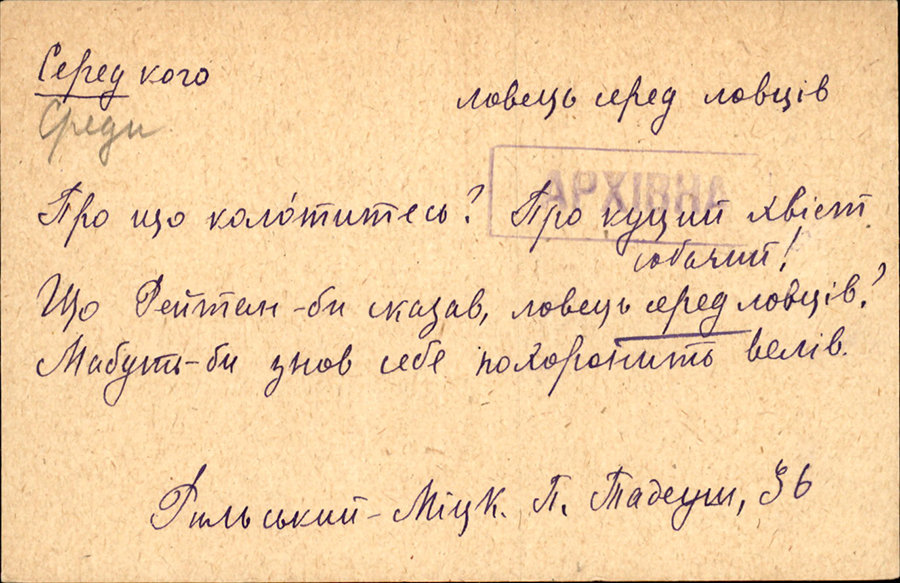 Серед кого
ловець серед ловців
Среди
АРХІВНА
Про що коло́титесь? Про куций хвіст
собачий!
Що Рейтан-би сказав, ловець серед ловців?
Мабуть-би знов себе похоронить велів.
Рильський-Міцк. П. Тадеуш, 36